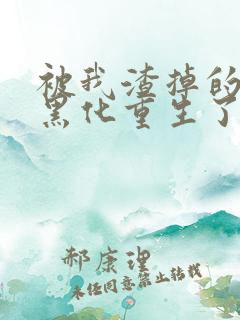 被我渣掉的
黑化重生了
郝康理
未经同意禁止转载